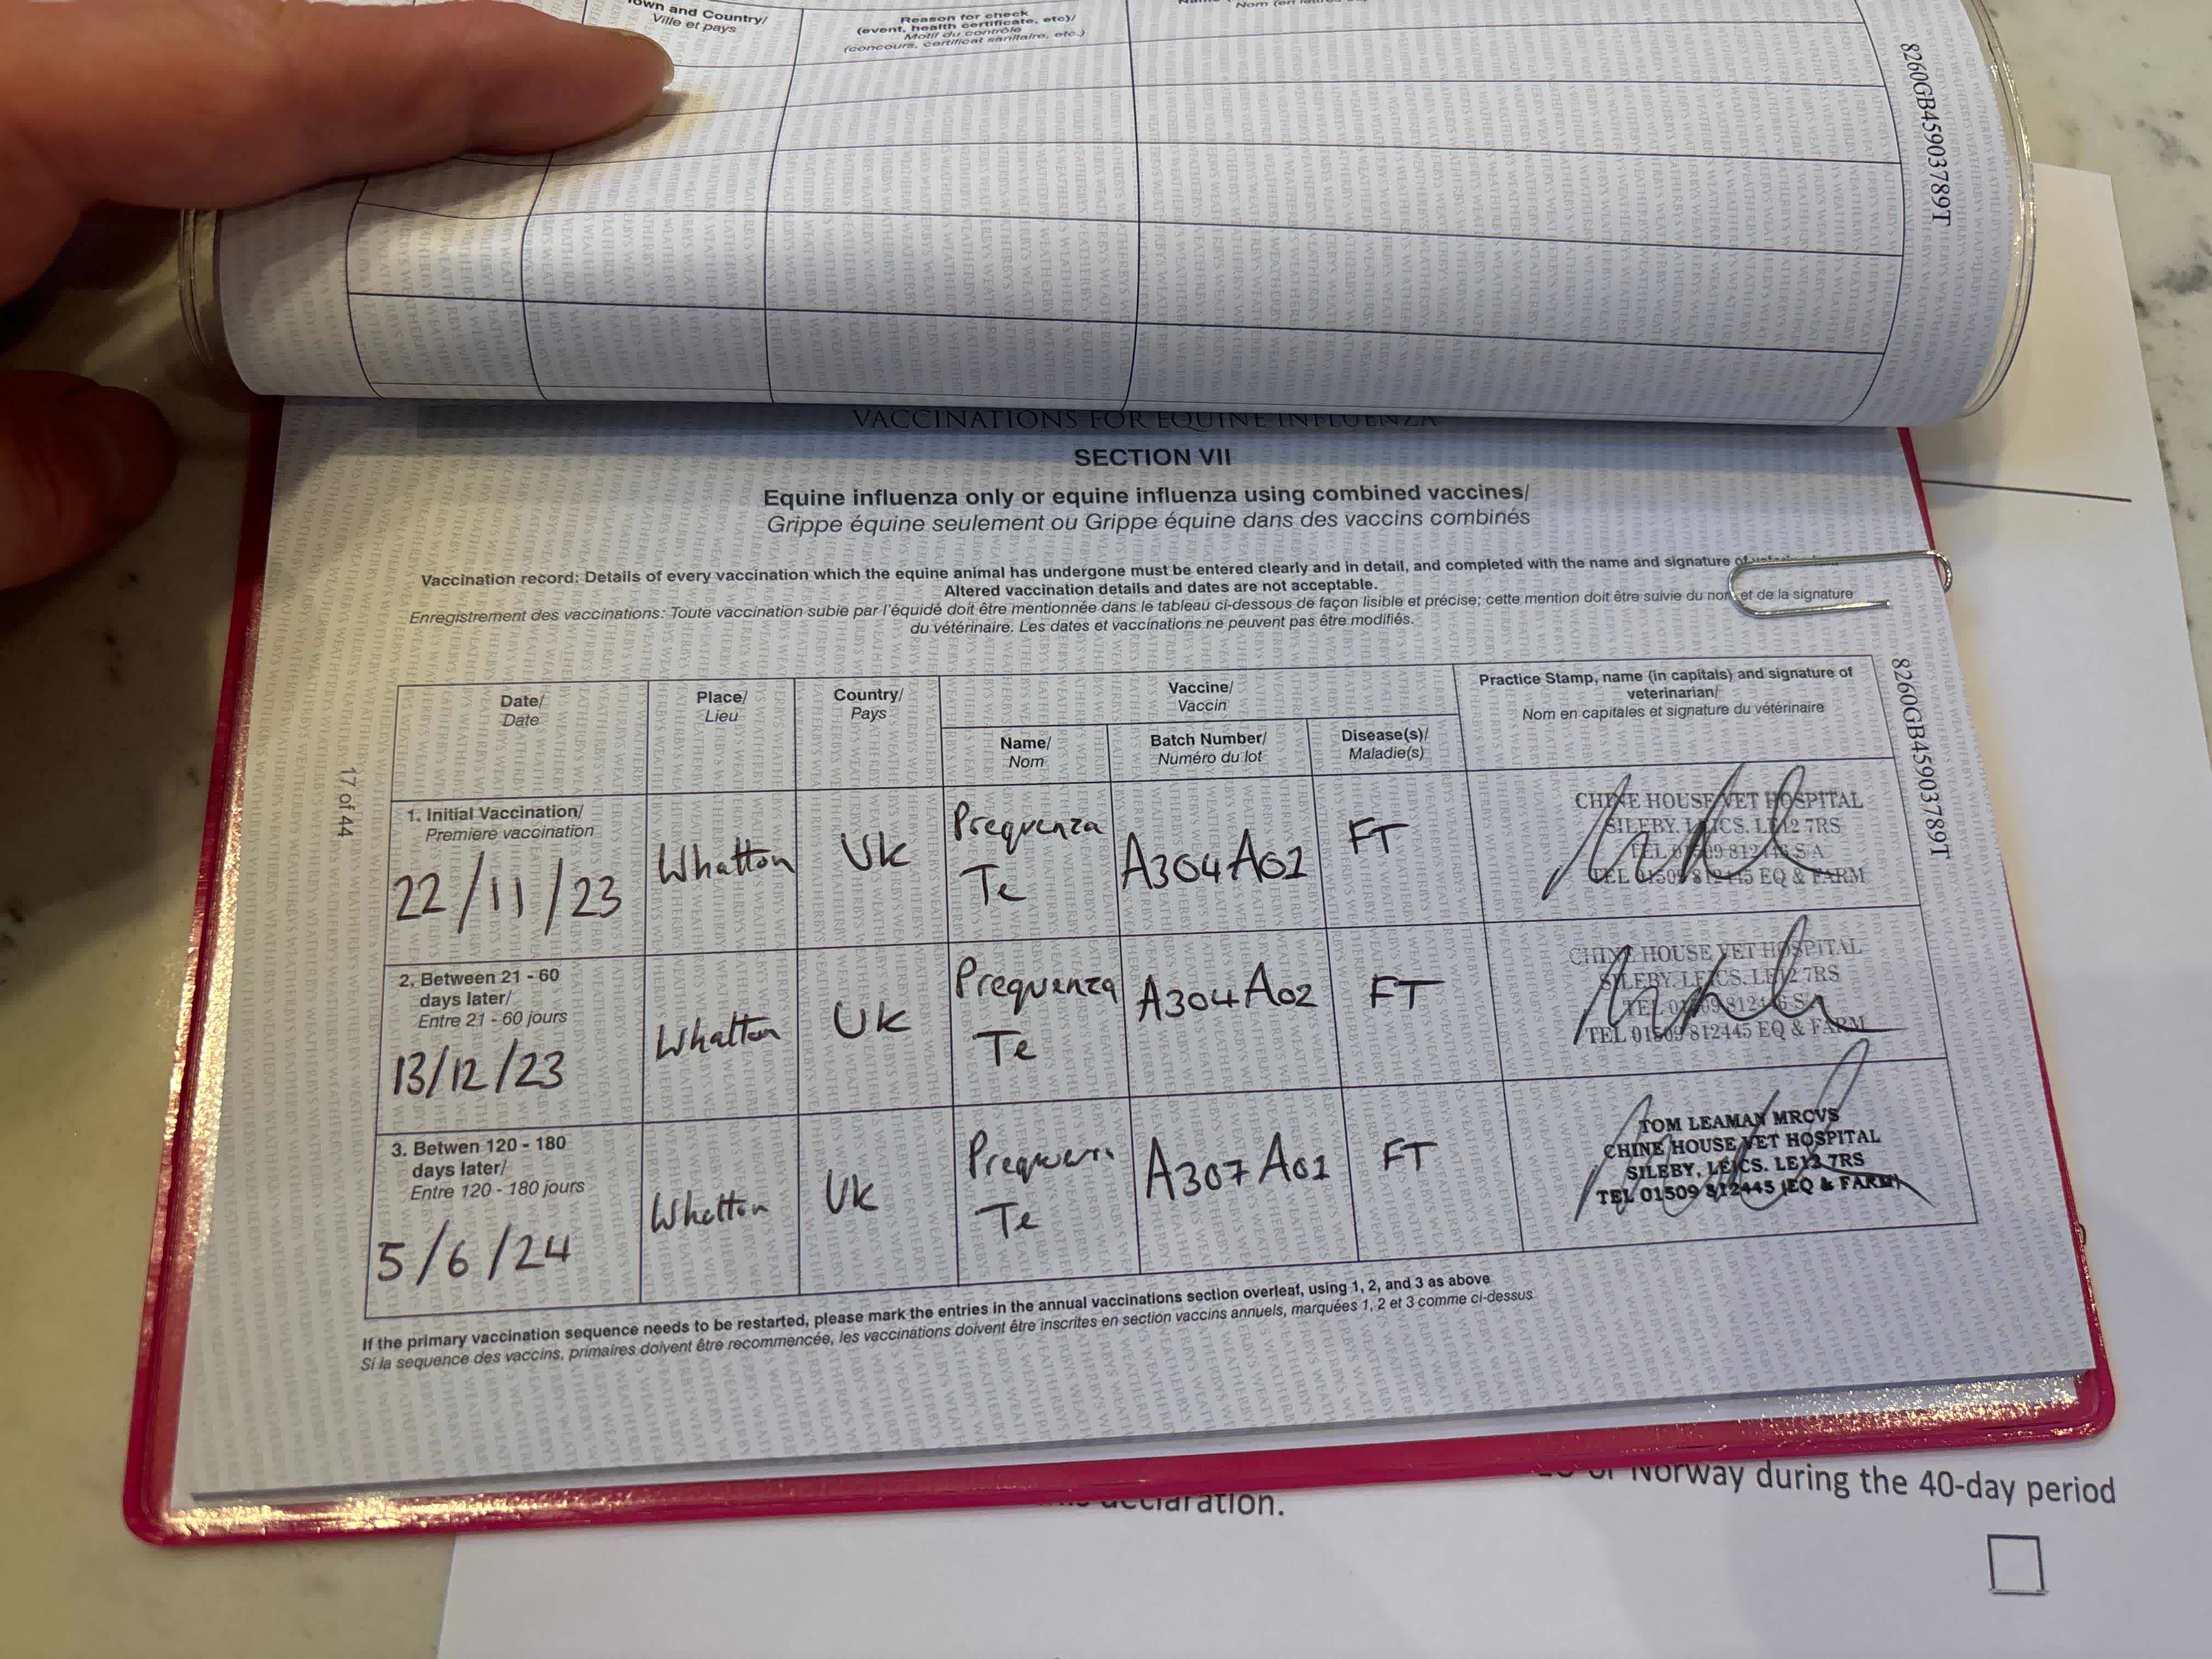 Town and Country/
Ville et pays
Reason for check
(event, health certificate, etc)/
Motif du contrôle
(concours, certificat sanitaire, etc.)
8260GB45903789T
VACCINATIONS FOR EQUINE INFLUENZA
SECTION VII
Equine influenza only or equine influenza using combined vaccines/
Grippe équine seulement ou Grippe équine dans des vaccins combinés
Vaccination record: Details of every vaccination which the equine animal has undergone must be entered clearly and in detail, and completed with the name and signature of
Altered vaccination details and dates are not acceptable.
Enregistrement des vaccinations: Toute vaccination subie par l'équidé doit être mentionnée dans le tableau ci-dessous de façon lisible et précise; cette mention doit être suivie du nom et de la signature
du vétérinaire. Les dates et vaccinations ne peuvent pas être modifiés.
Date/
Date
Place/
Lieu
Country/
Pays
Vaccine/
Vaccin
Name/
Nom
Batch Number/
Numéro du lot
Disease(s)/
Maladie(s)
Practice Stamp, name (in capitals) and signature of
veterinarian/
Nom en capitales et signature du vétérinaire
1. Initial Vaccination/
Premiere vaccination
22/11/23
Whatton
UK
Prequenza
Te
A304A01
FT
CHINE HOUSE VET HOSPITAL
SILEBY, LEICS. LE12 7RS
TEL 01509 812446 SA
TEL 01509 812445 EQ & FARM
2. Between 21 - 60
days later/
Entre 21 - 60 jours
13/12/23
Whatton
UK
Prequenza
Te
A304A02
FT
CHINE HOUSE VET HOSPITAL
SILEBY, LEICS. LE12 7RS
TEL 01509 812446 SA
TEL 01509 812445 EQ & FARM
3. Betwen 120 - 180
days later/
Entre 120 - 180 jours
5/6/24
Whatton
UK
Te
A307A01
FT
TOM LEAMAN MRCVS
CHINE HOUSE VET HOSPITAL
SILEBY, LEICS. LE12 7RS
TEL 01509 812445 (EQ & FARM)
If the primary vaccination sequence needs to be restarted, please mark the entries in the annual vaccinations section overleaf, using 1, 2, and 3 as above
Si la sequence des vaccins, primaires doivent être recommencée, les vaccinations doivent être inscrites en section vaccins annuels, marquées 1, 2 et 3 comme ci-dessus
17 of 44
8260GB45903789T
or Norway during the 40-day period
declaration.